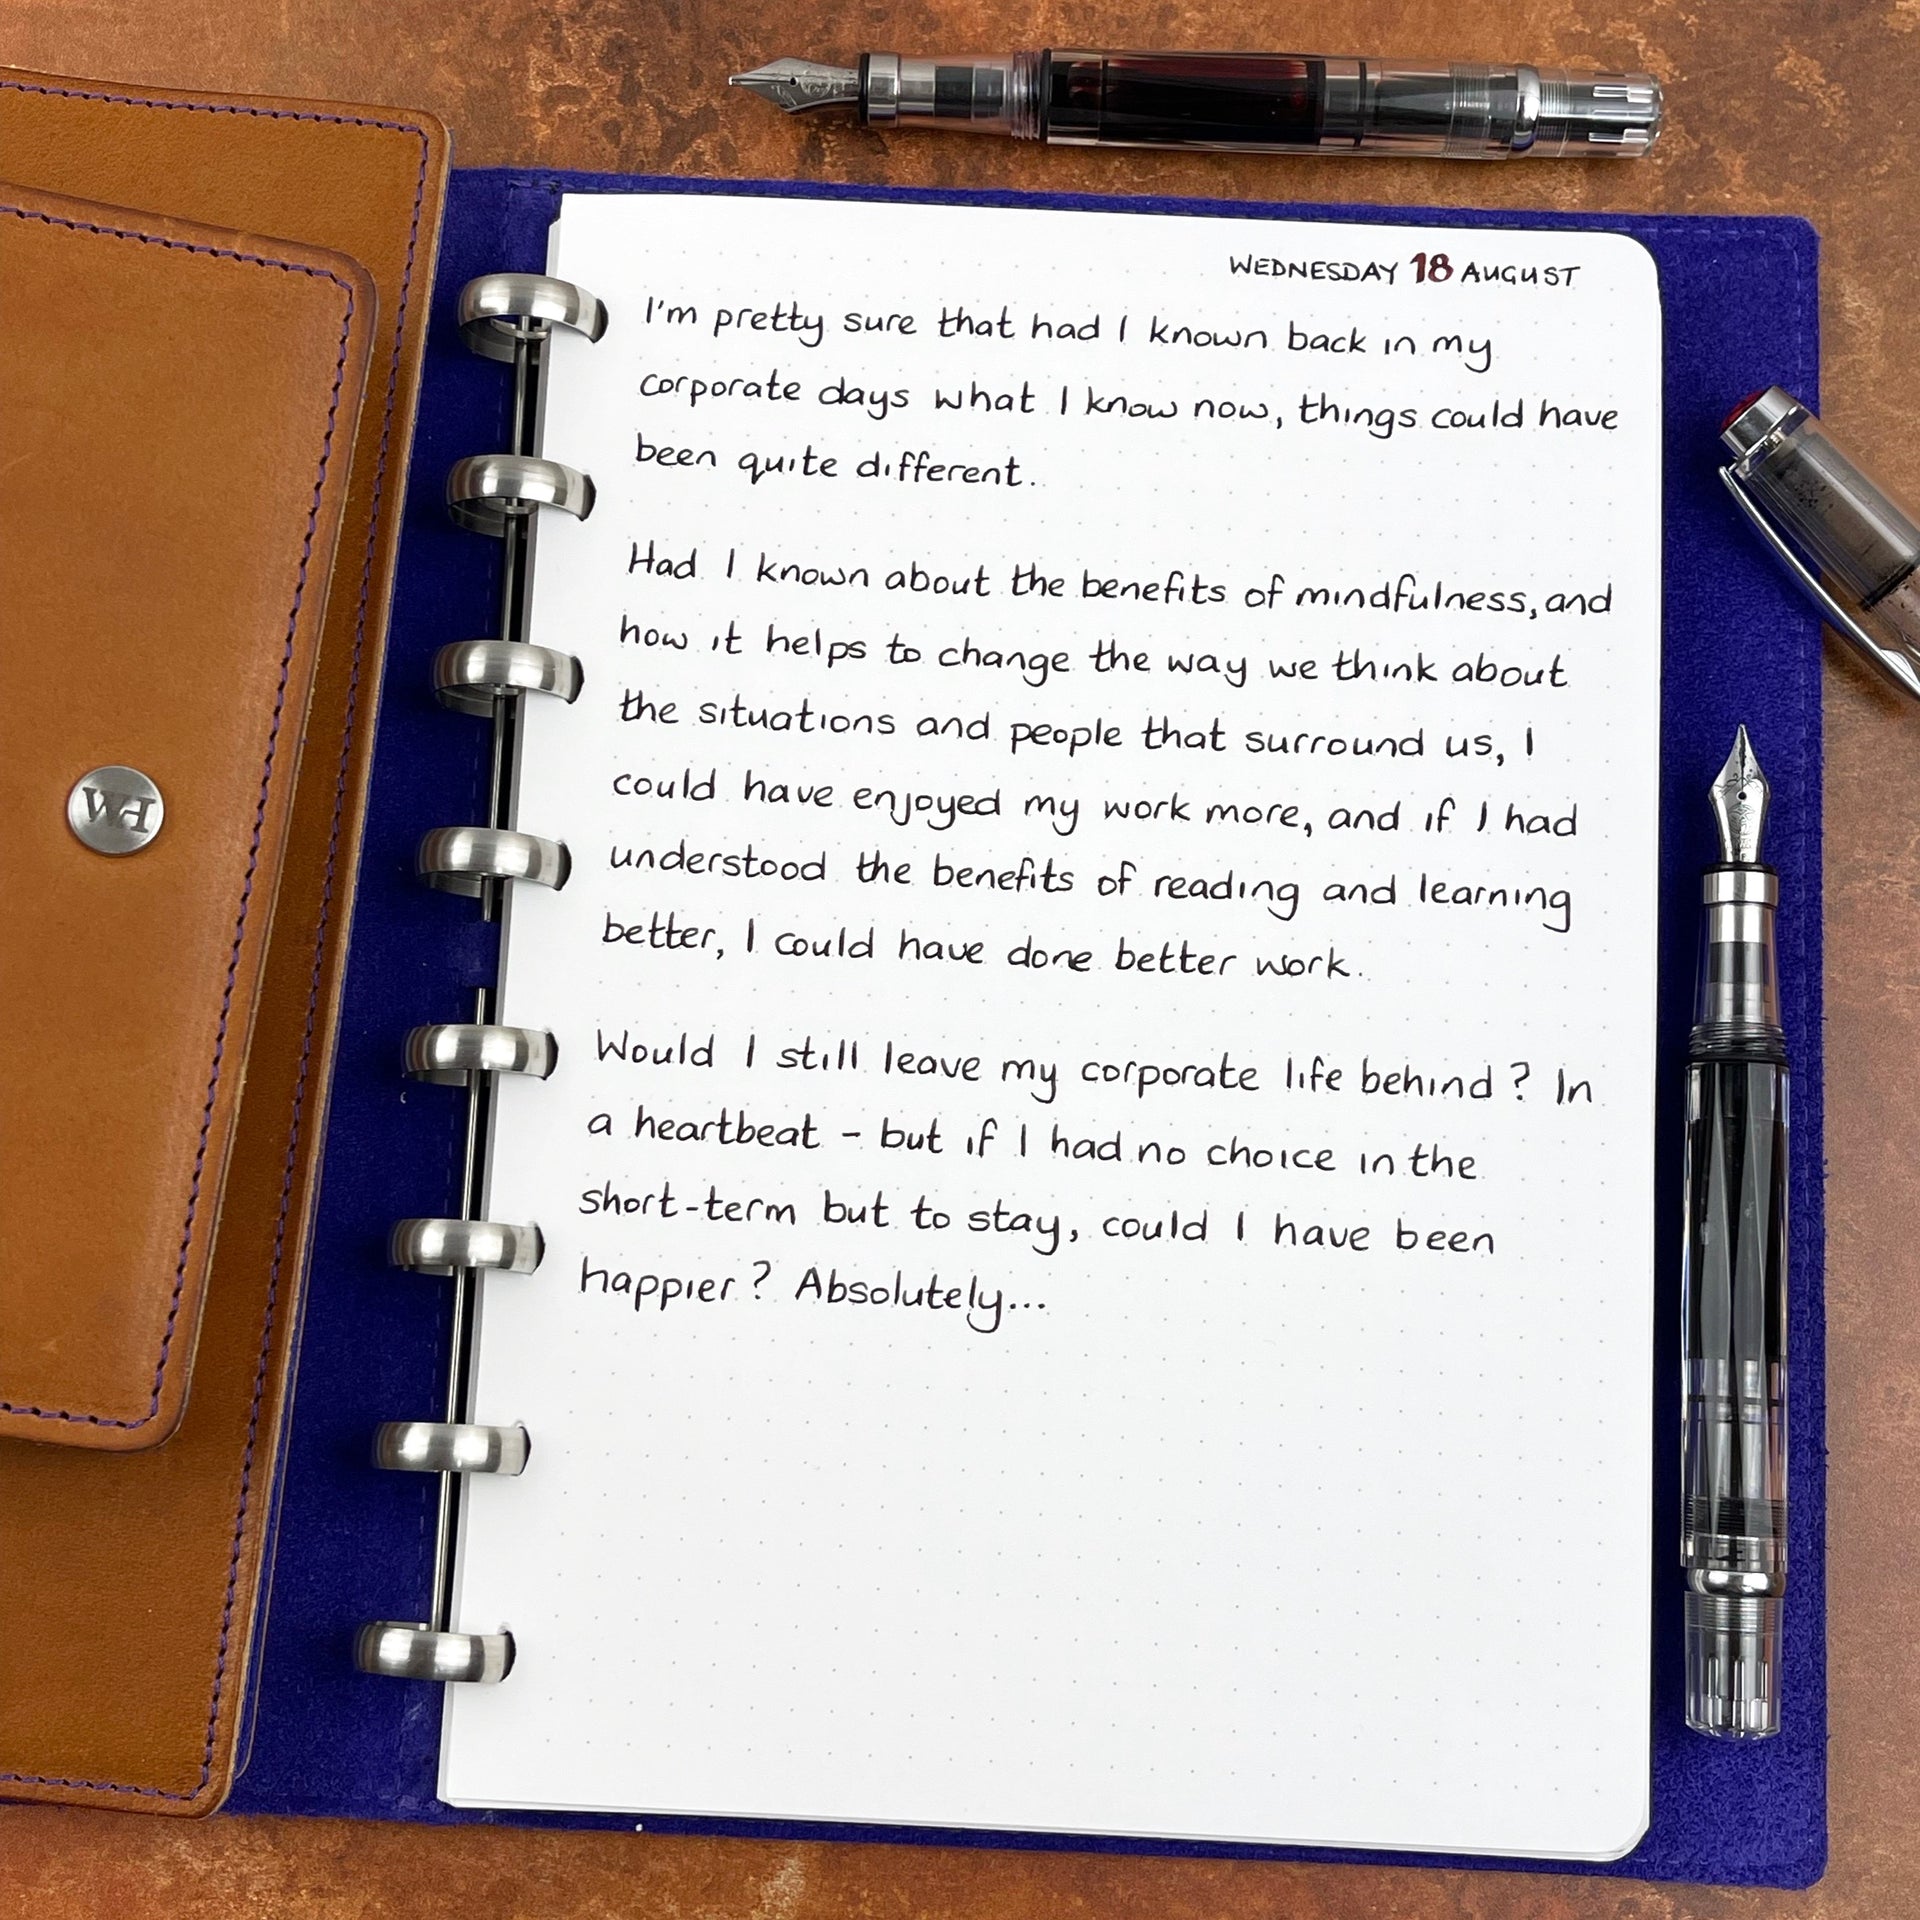 WEDNESDAY 18 AUGUST
I'm pretty sure that had I known back in my
corporate days what I know now, things could have
been quite different.
Had I known about the benefits of mindfulness, and
how it helps to change the way we think about
the situations and people that surround us, I
could have enjoyed my work more, and if I had
understood the benefits of reading and learning
better, I could have done better work.
Would I still leave my corporate life behind? In
a heartbeat - but if I had no choice in the
short-term but to stay, could I have been
happier? Absolutely...
WH